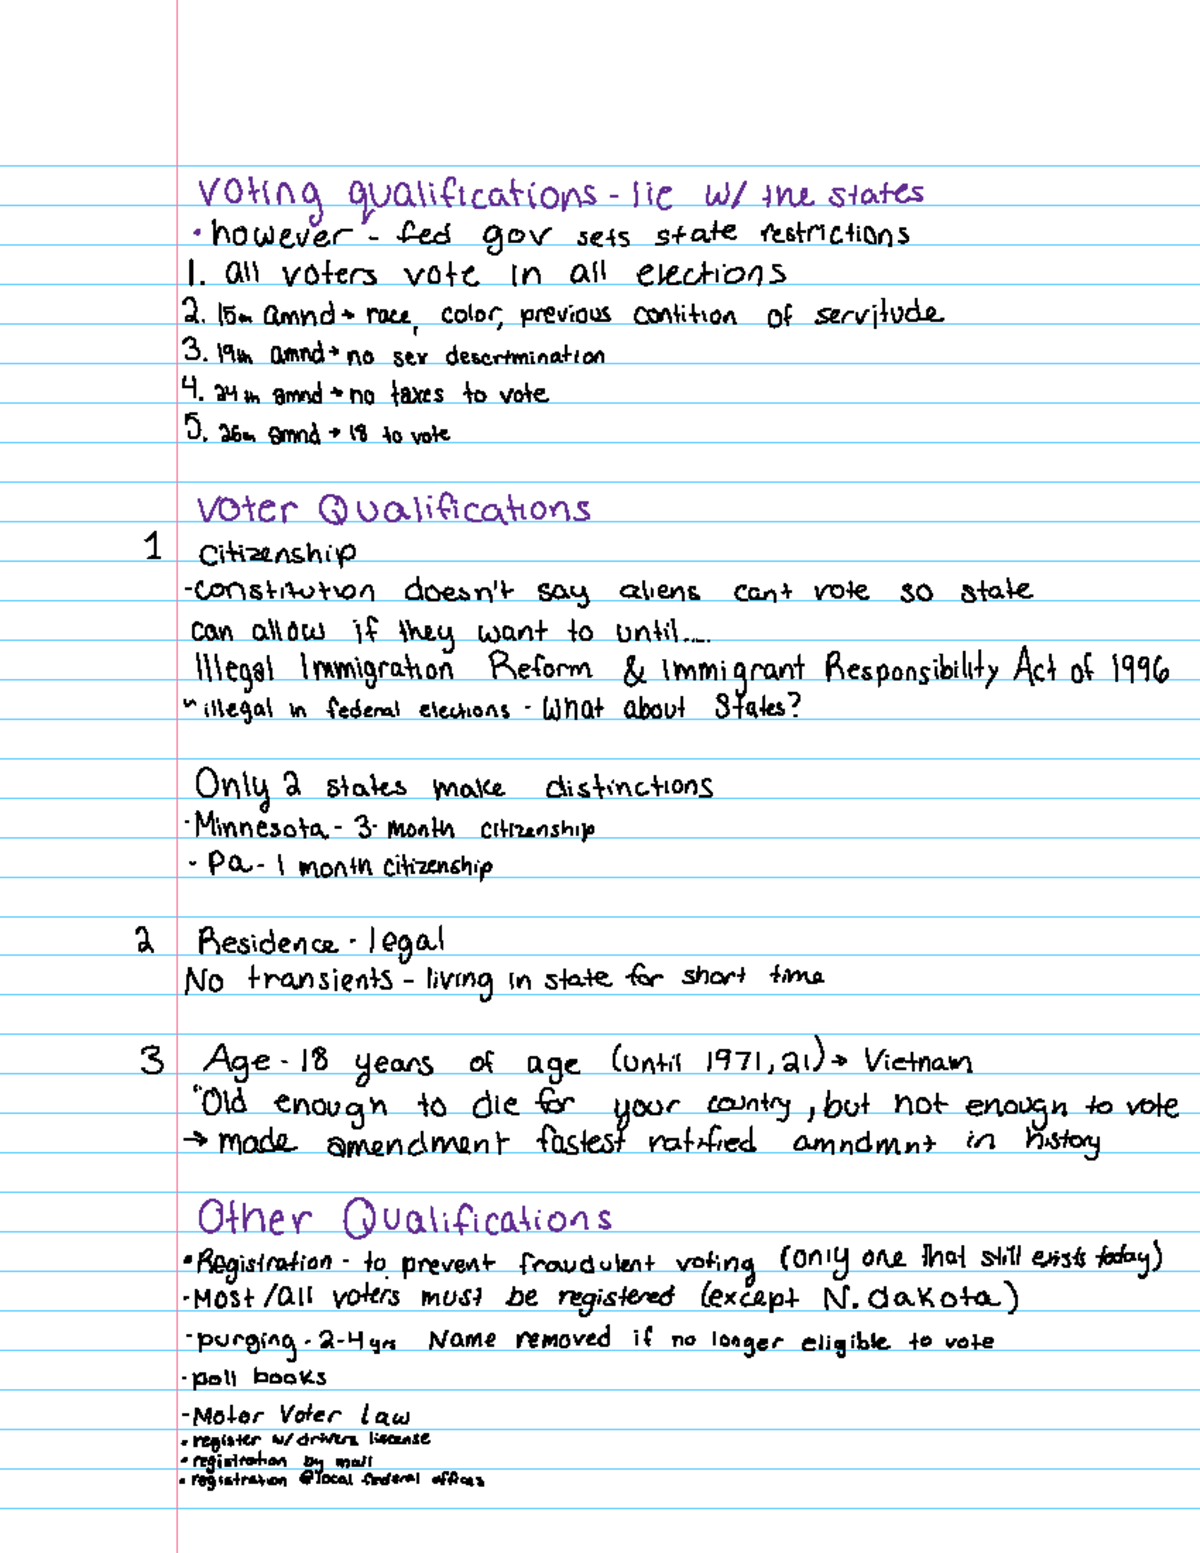 Voting qualifications - lie w/ the states
• however - fed gov sets state restrictions
1. all voters vote in all elections
2. 15th amnd → race, color, previous contition of servitude
3. 19th amnd → no sex descrtmination
4. 24th amnd → no taxes to vote
5. 26th amnd → 18 to vote
Voter Qualifications
1 Citizenship
- constitution doesn't say aliens cant vote so state
can allow if they want to until....
Illegal Immigration Reform & Immigrant Responsibility Act of 1996
~ illegal in federal elections - What about States?
Only 2 states make distinctions
· Minnesota - 3 - month citizenship
- Pa - 1 month citizenship
2 Residence - legal
No transients - living in state for short time
3 Age - 18 years of age (until 1971, 21) → Vietnam
"Old enough to die for your country, but not enough to vote
→ made amendment fastest ratified amndmnt in history
Other Qualifications
• Registration - to prevent fraudulent voting (only one that still exists today)
- Most/all voters must be registered (except N. dakota)
- purging - 2-4 yrs Name removed if no longer eligible to vote
- poll books
- Motor Voter law
• register w/ drivers liscense
• registration by mail
• registration @ local federal offices